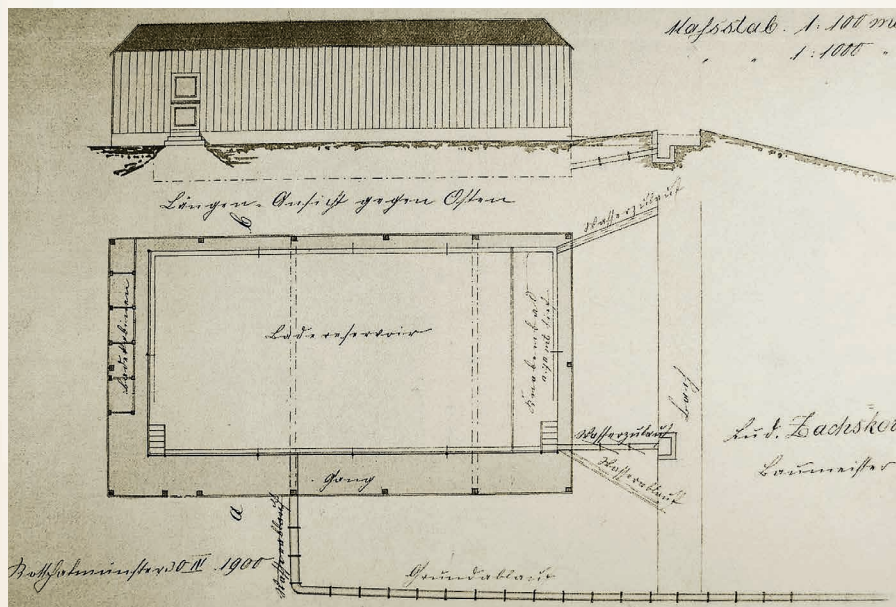 Maßstab. 1:100 m
" " 1:1000 "
Längen-Ansicht gegen Osten
b
Wasserzulauf
Badekabinen
Badereservoir
Knabenbad
Wasserzulauf
Wasserablauf
Lud. Zachsko
Baumeister
Gang
a
Wasserablauf
Rotthalmünster 30 IV. 1900
Grundablauf